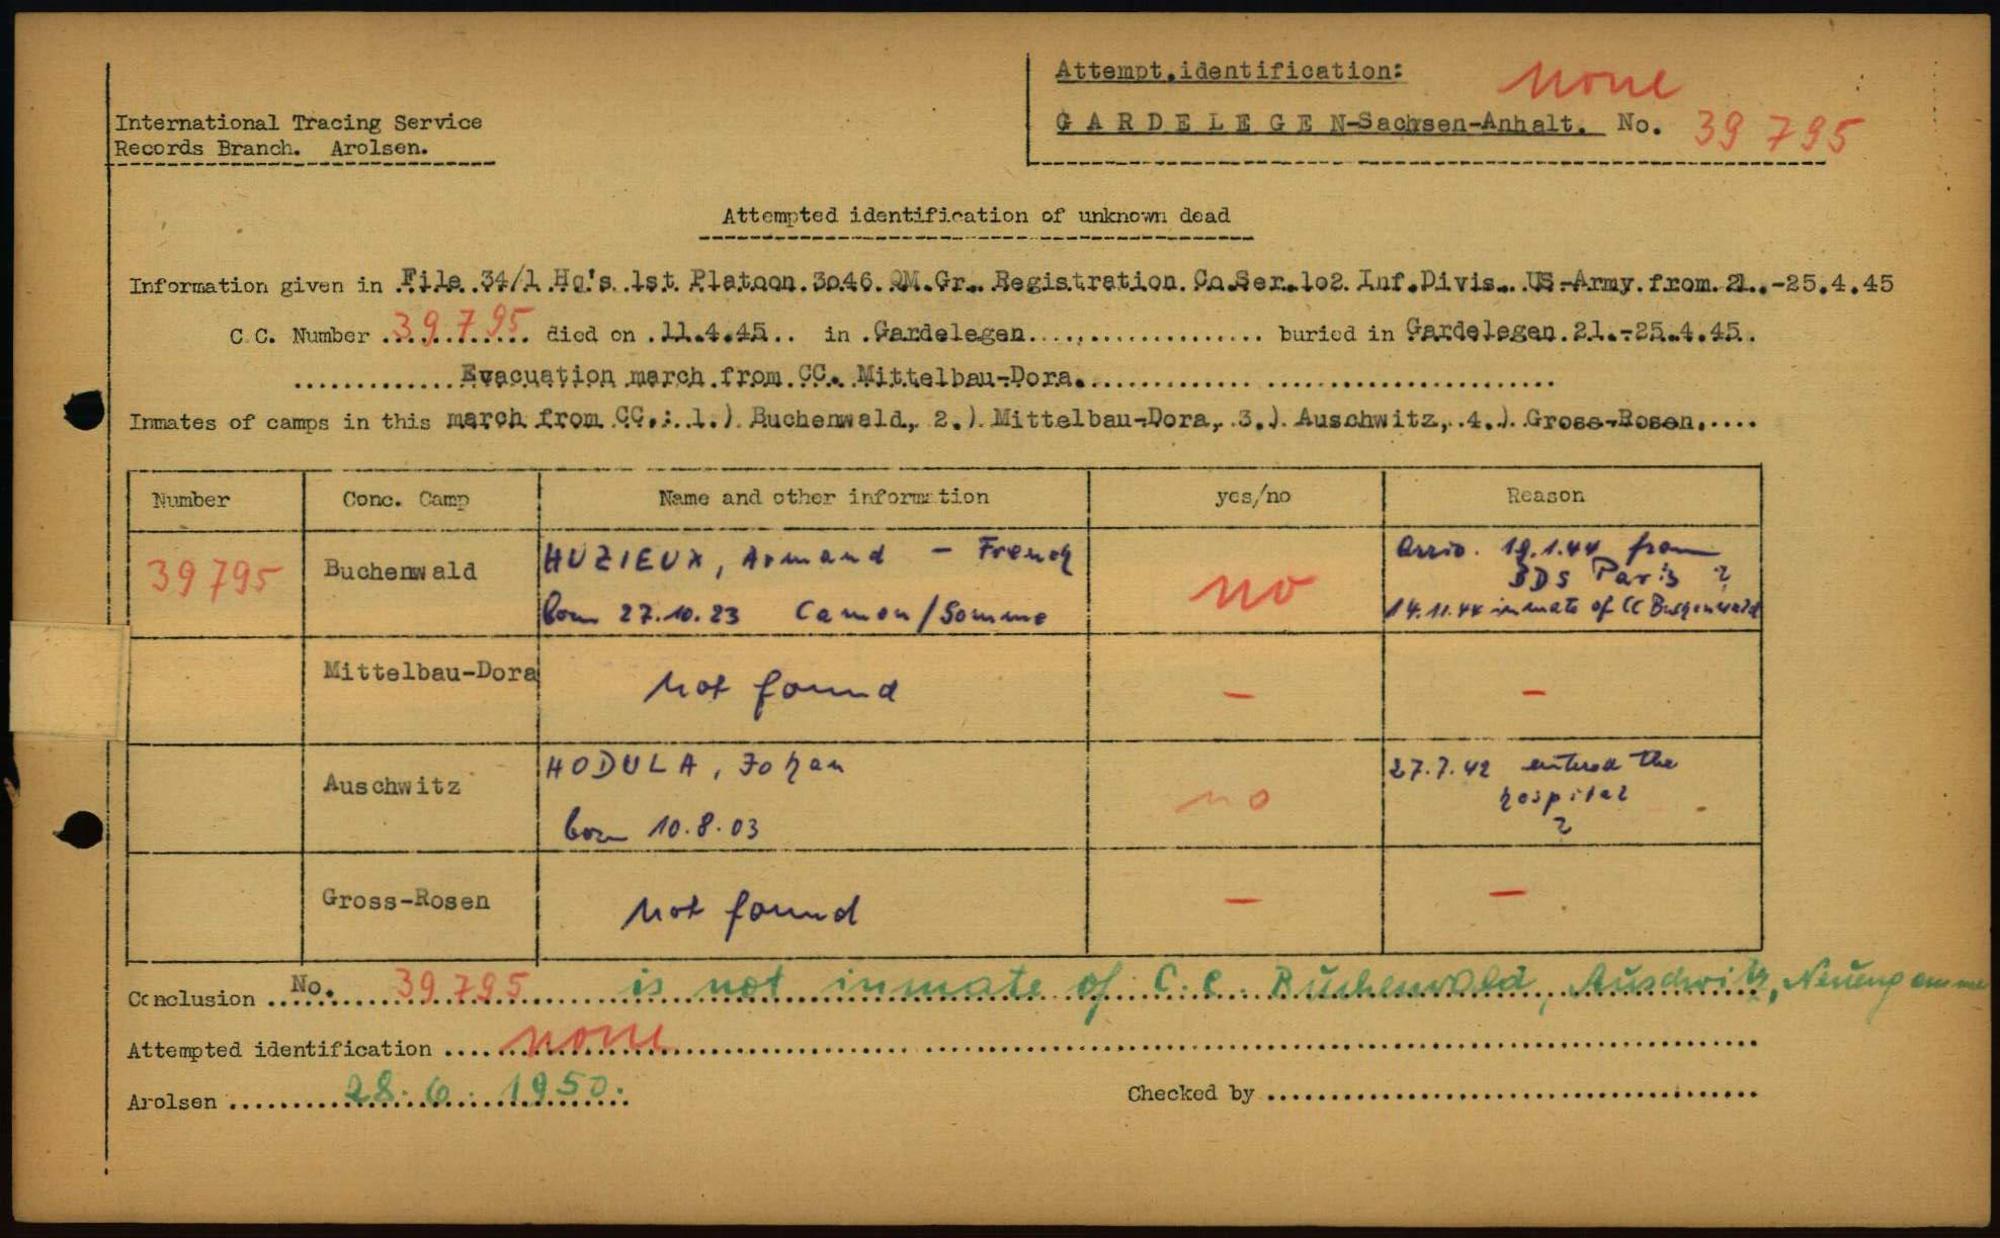 Attempt.identification: none
International Tracing Service
Records Branch. Arolsen.
G A R D E L E G E N-Sachsen-Anhalt. No. 39 795
Attempted identification of unknown dead
Information given in File 34/1 Hq's 1st Platoon 3o46 QM.Gr. Registration Co.Ser.1o2 Inf.Divis. US-Army from 21.-25.4.45
C.C. Number 39.795 died on 11.4.45 in Gardelegen buried in Gardelegen 21.-25.4.45.
Evacuation march from CC. Mittelbau-Dora.
Inmates of camps in this march from CC.: 1.) Buchenwald, 2.) Mittelbau-Dora, 3.) Auschwitz, 4.) Gross-Rosen.
Number Conc. Camp Name and other information yes/no Reason
39795 Buchenwald HUZIEUX, Armand - French no Arriv. 19.1.44 from
BDS Paris ?
born 27.10.23 Camon/Somme 14.11.44 inmate of CC Buchenwald
Mittelbau-Dora not found - -
Auschwitz HODULA, Johan no 27.7.42 entered the
hospital
born 10.8.03 ?
Gross-Rosen not found - -
Conclusion No. 39795 is not inmate of C.C. Buchenwald, Auschwitz, Neuengamme
Attempted identification none
Arolsen 28.6.1950. Checked by